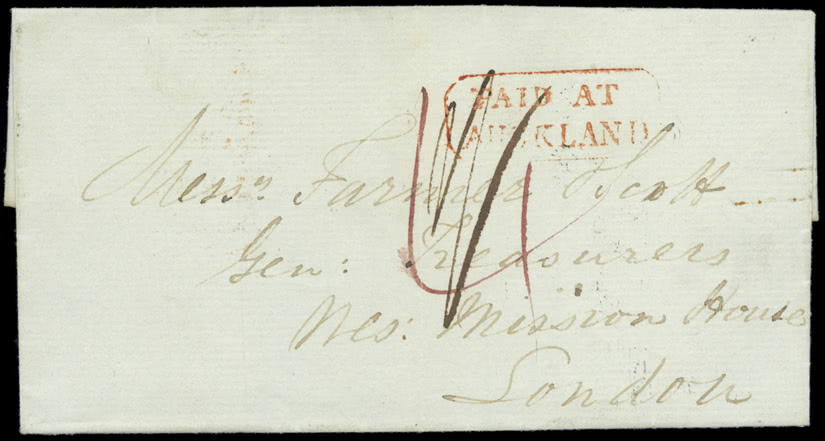 PAID AT
AUCKLAND
4
Messrs Farmer & Scott
Gen: Treasurers
Wes: Mission House
London